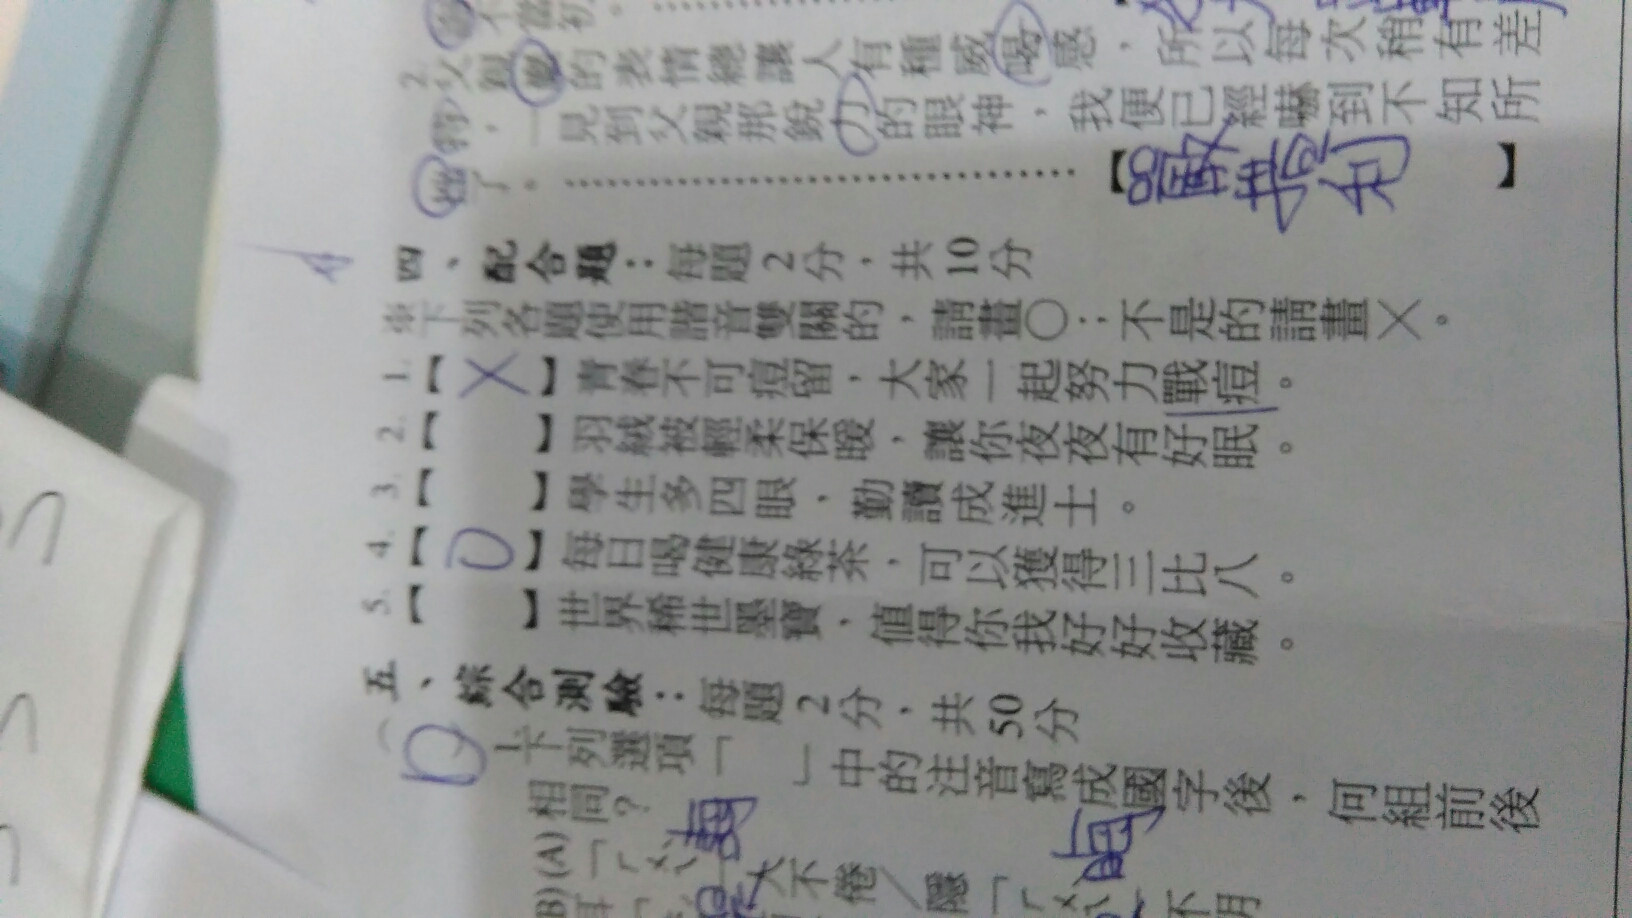 2.父親 的表情總讓人有種威喝感，所以每次稍有差
，一見到父親那銳力的眼神，我便已經嚇到不知所
了。……………………………【嚴 利 】
四、配合題：每題2分，共10分
※下列各題使用諧音雙關的，請畫○；不是的請畫×。
1.【×】青春不可痘留，大家一起努力戰痘。
2.【 】羽絨被輕柔保暖，讓你夜夜有好眠。
3.【 】學生多四眼，勤讀成進士。
4.【O】每日喝健康綠茶，可以獲得三比八。
5.【 】世界稀世墨寶，值得你我好好收藏。
五、綜合測驗：每題2分，共50分
1.下列選項「 」中的注音寫成國字後，何組前後
相同？
(A)「ㄏㄨㄟˋ 人不倦／隱「ㄏㄨㄟˋ
(B)